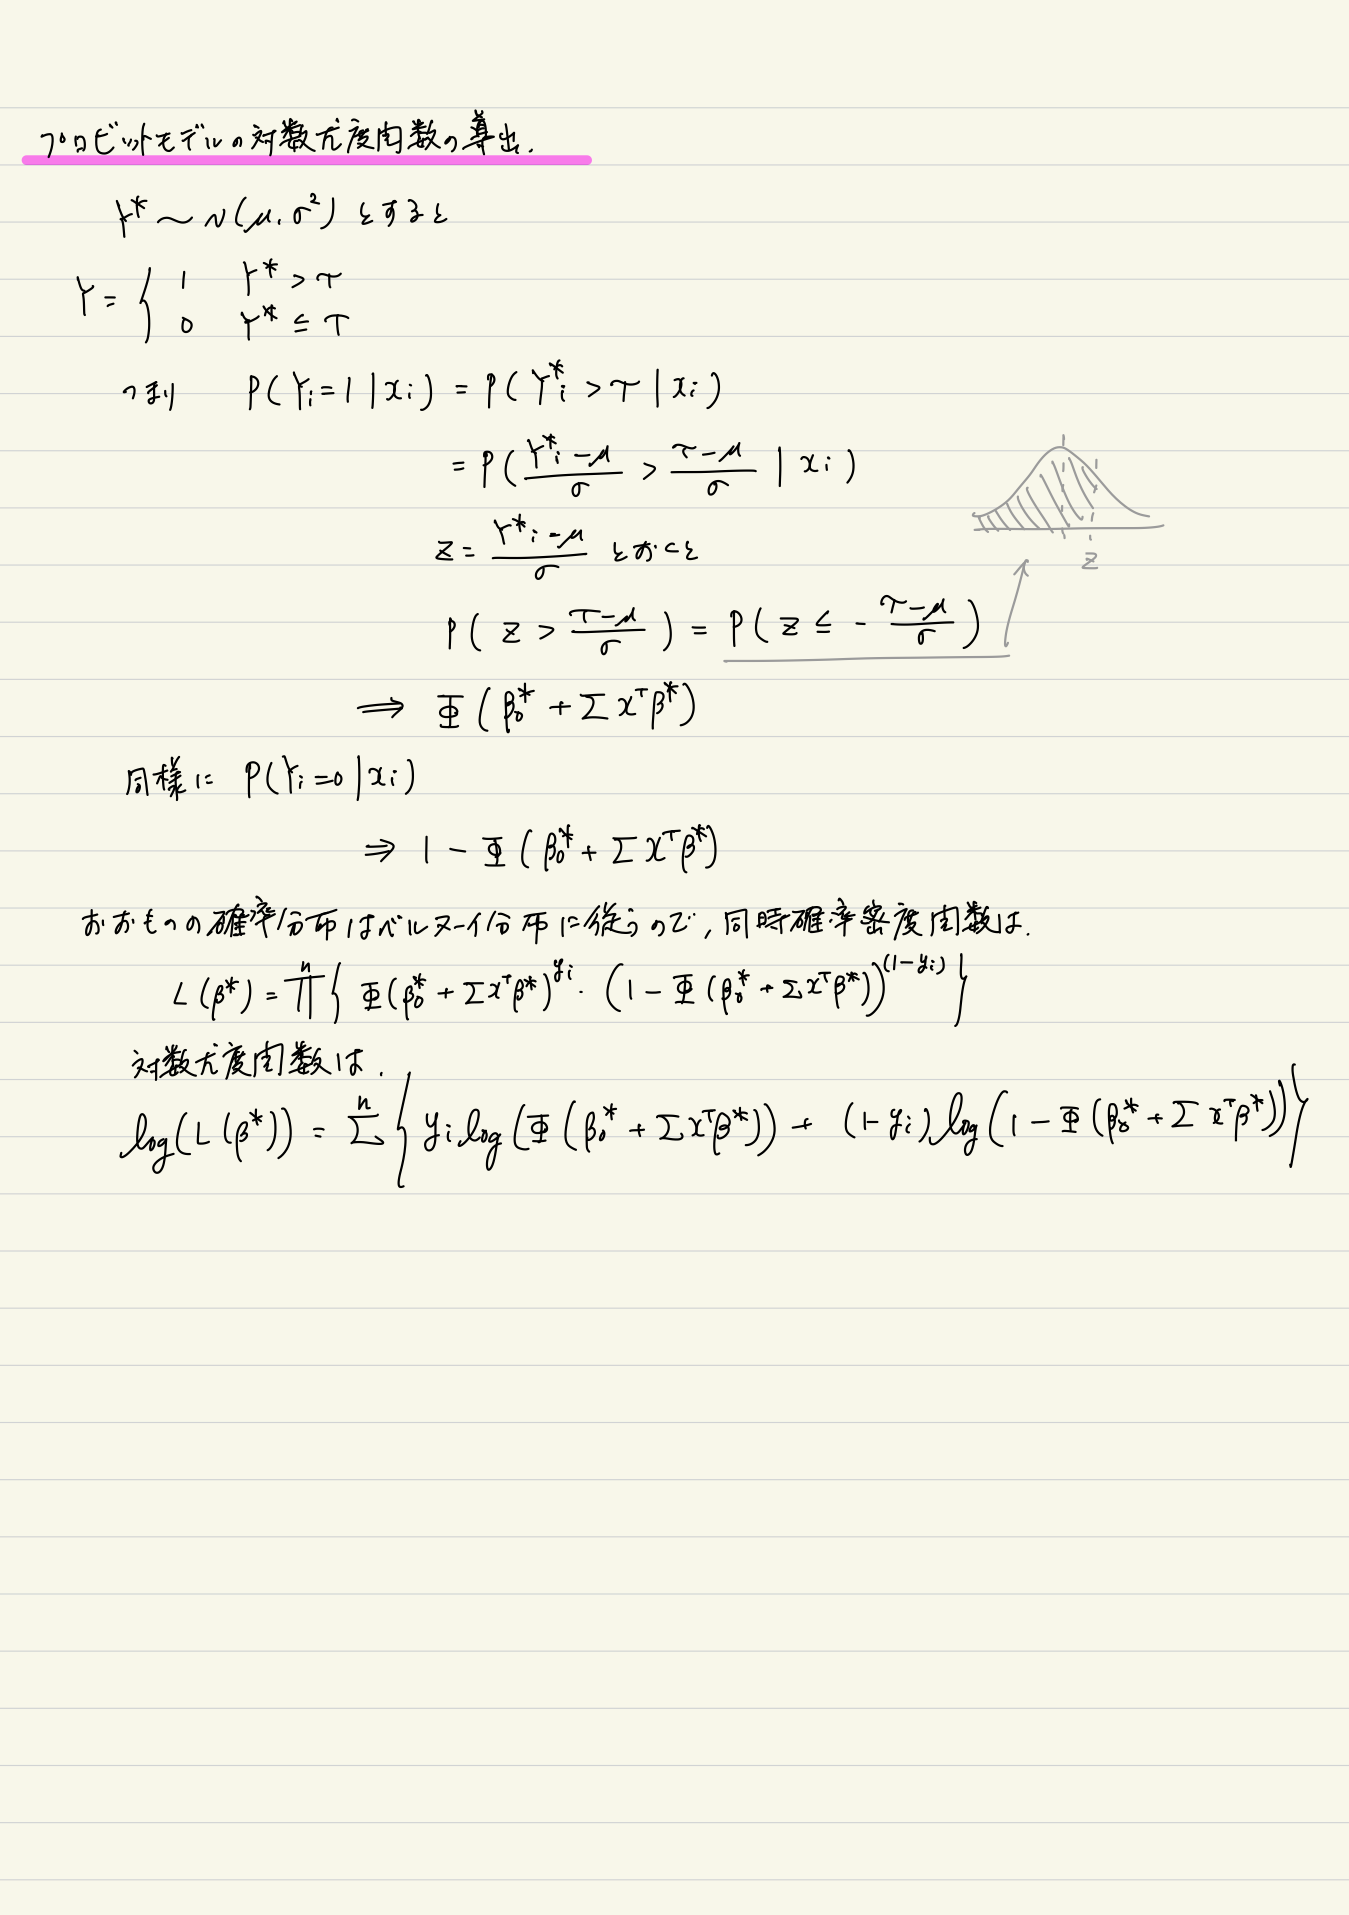 プロビットモデルの対数尤度関数の導出.
Y* ~ N(μ, σ²) とすると
Y = { 1 Y* > τ
0 Y* ≦ τ
つまり P(Yi=1 | xi) = P(Y*i > τ | xi)
= P((Y*i - μ)/σ > (τ-μ)/σ | xi)
Z = (Y*i - μ)/σ とおくと
Z
P(Z > (τ-μ)/σ) = P(Z ≦ -(τ-μ)/σ)
⟹ Φ(β₀* + Σxᵀβ*)
同様に P(Yi=0 | xi)
⇒ 1 - Φ(β₀* + Σxᵀβ*)
おおもとの確率分布はベルヌーイ分布に従うので, 同時確率密度関数は.
L(β*) = Πⁿ{ Φ(β₀* + Σxᵀβ*)^yi · (1 - Φ(β₀* + Σxᵀβ*))^(1-yi) }
対数尤度関数は.
log(L(β*)) = Σⁿ{ yi log(Φ(β₀* + Σxᵀβ*)) + (1-yi) log(1 - Φ(β₀* + Σxᵀβ*)) }